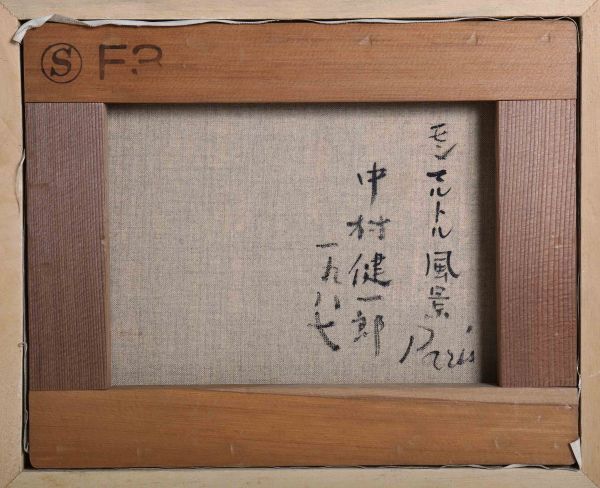 Ⓢ F3
モンマルトル風景
Paris
中村健一郎
一九八七